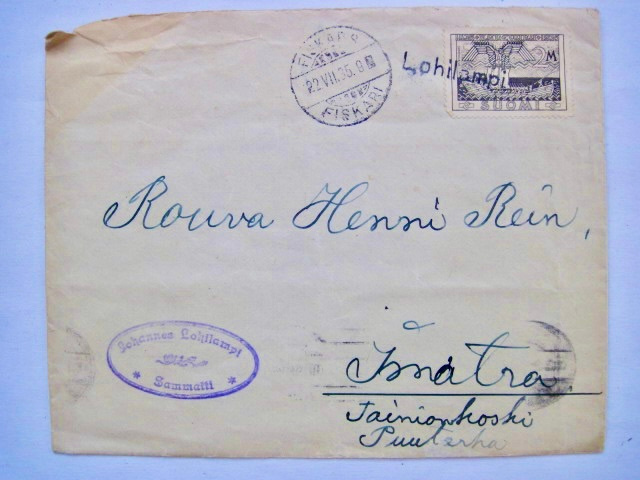 FISKARS
22.VII.35.9
FISKARI
Lohilampi
M
SUOMI
Rouva Henni Rein,
Johannes Lohilampi
Sammatti
Imatra
Tainionkoski
Puutarha